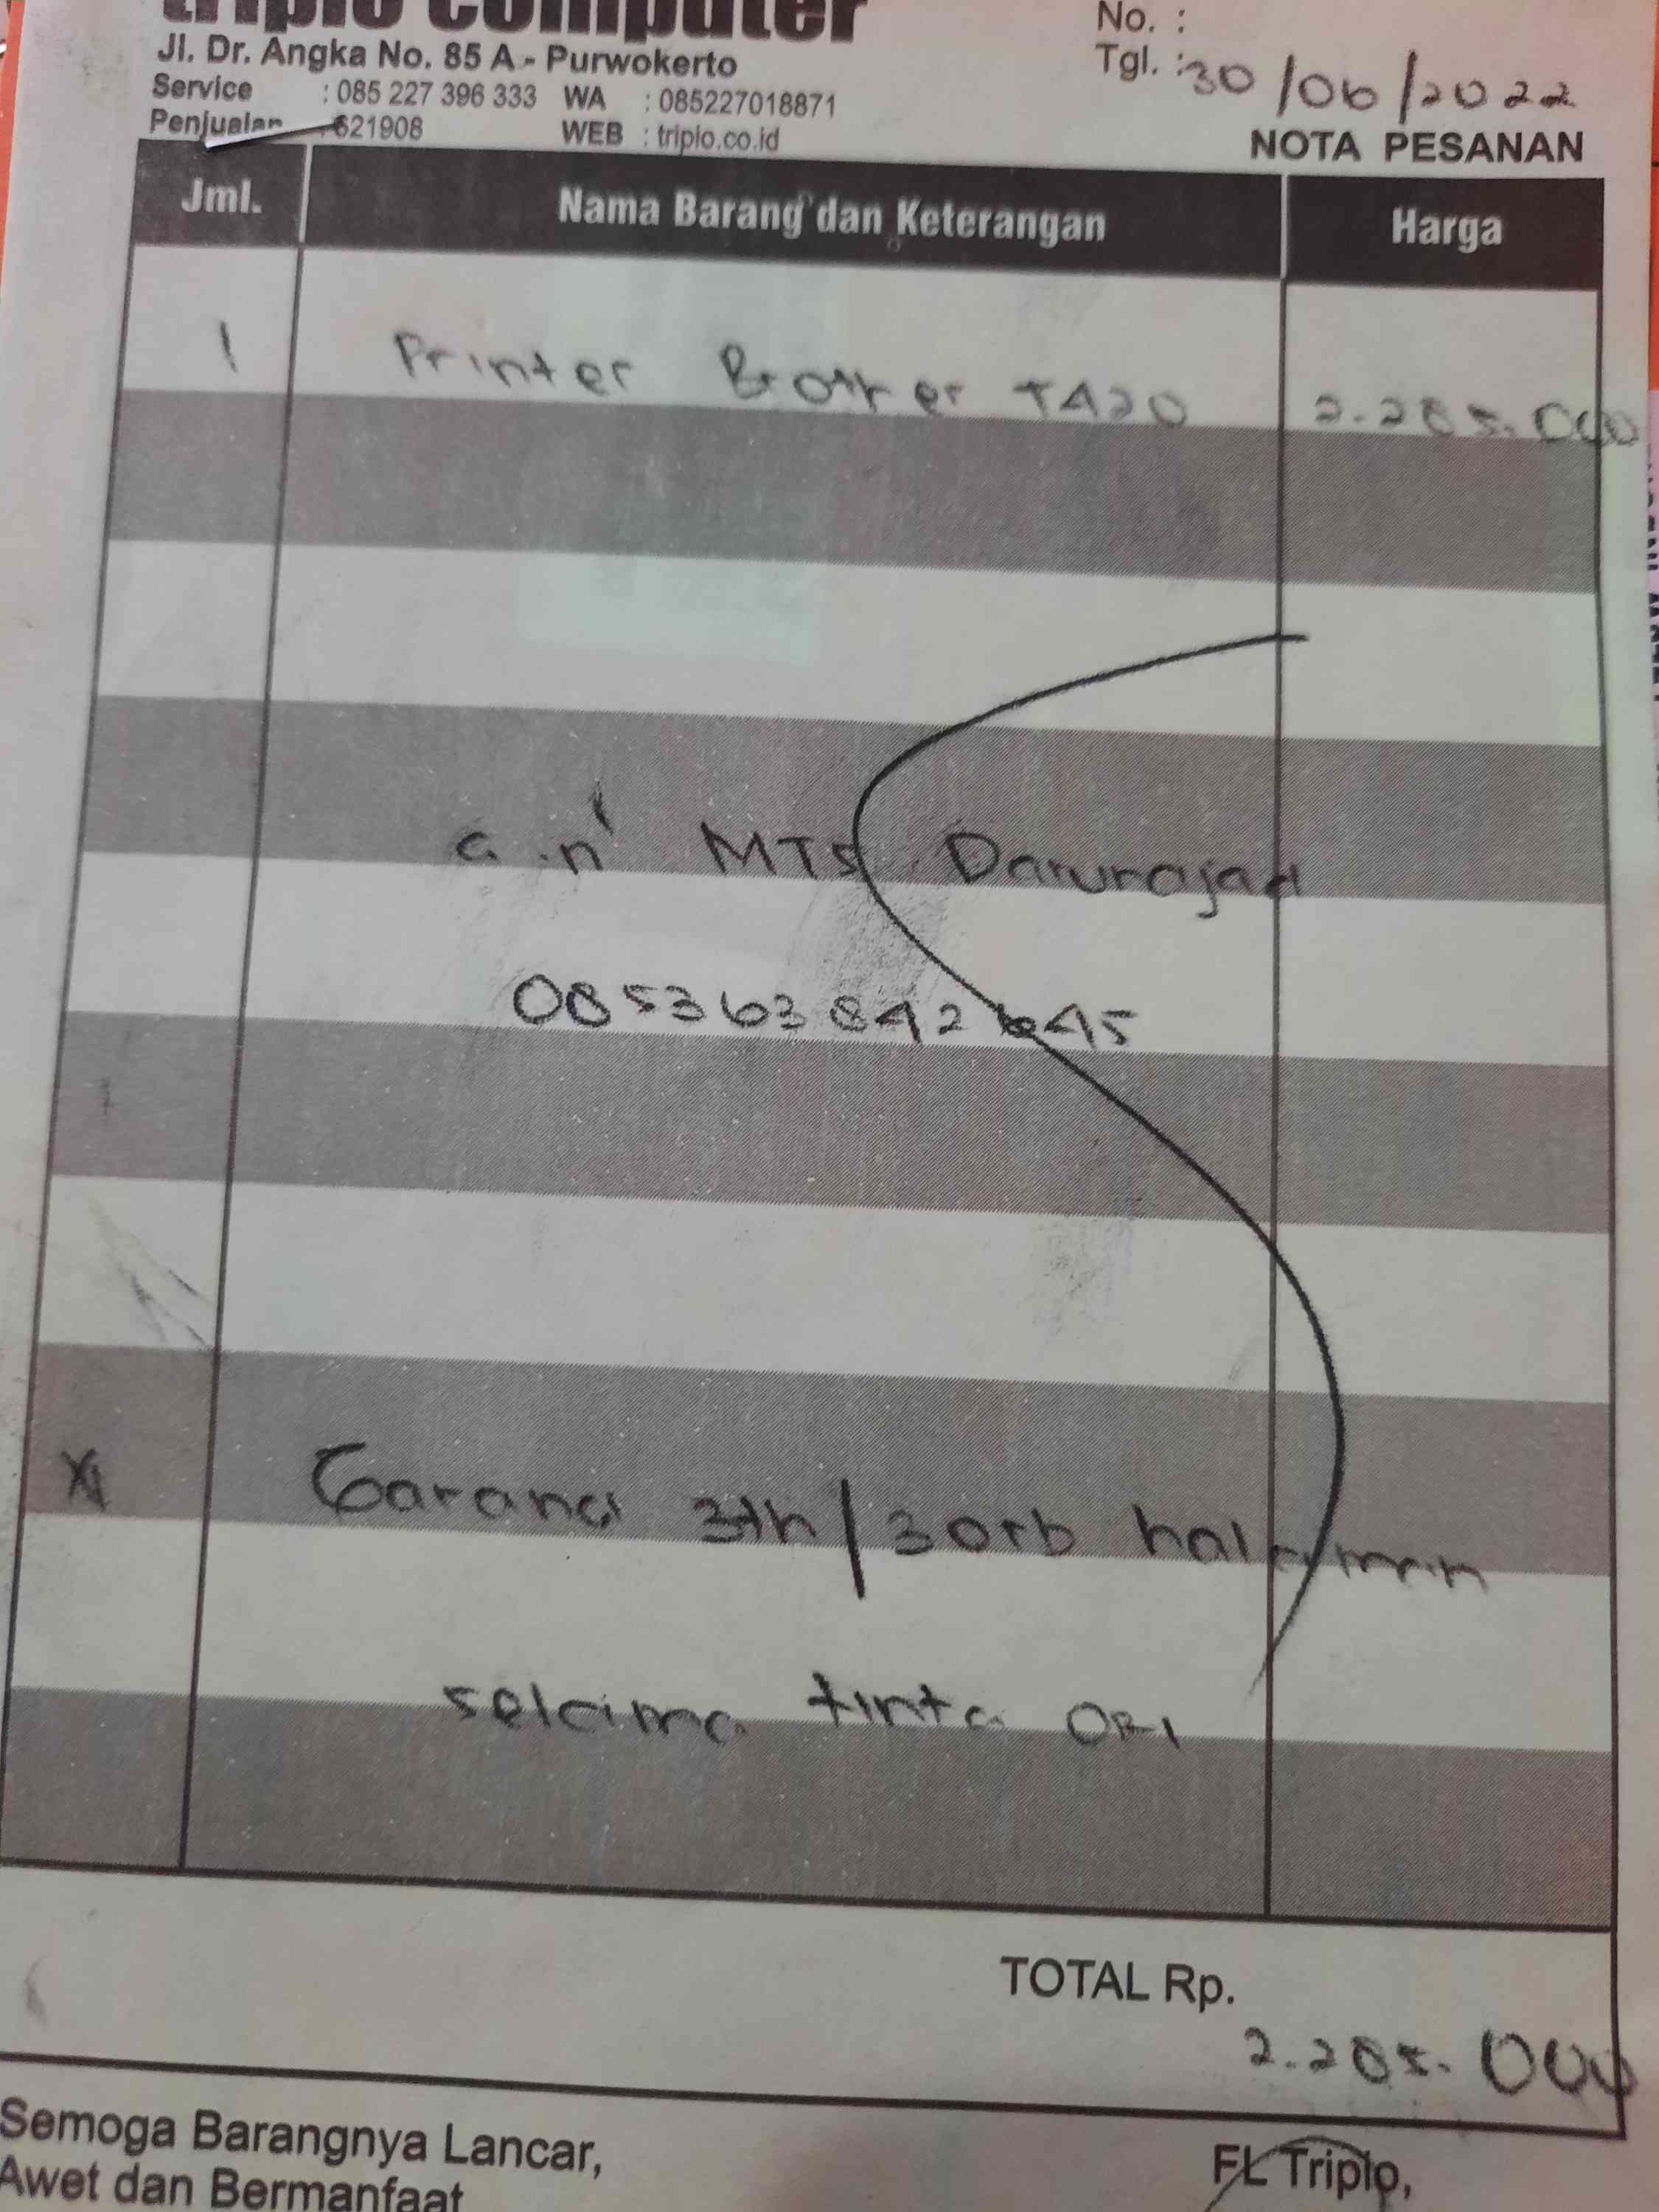 triplo computer
Jl. Dr. Angka No. 85 A - Purwokerto
Service : 085 227 396 333 WA : 085227018871
Penjualan : 621908 WEB : triplo.co.id
No. :
Tgl. : 30/06/2022
NOTA PESANAN
Jml. Nama Barang dan Keterangan Harga
1 Printer Brother T420 2.285.000
a.n MTS Darurajad
085363842645
Garansi 3th/30rb halaman
selama tinta ORI
TOTAL Rp.
2.285.000
Semoga Barangnya Lancar,
Awet dan Bermanfaat
FL Triplo,